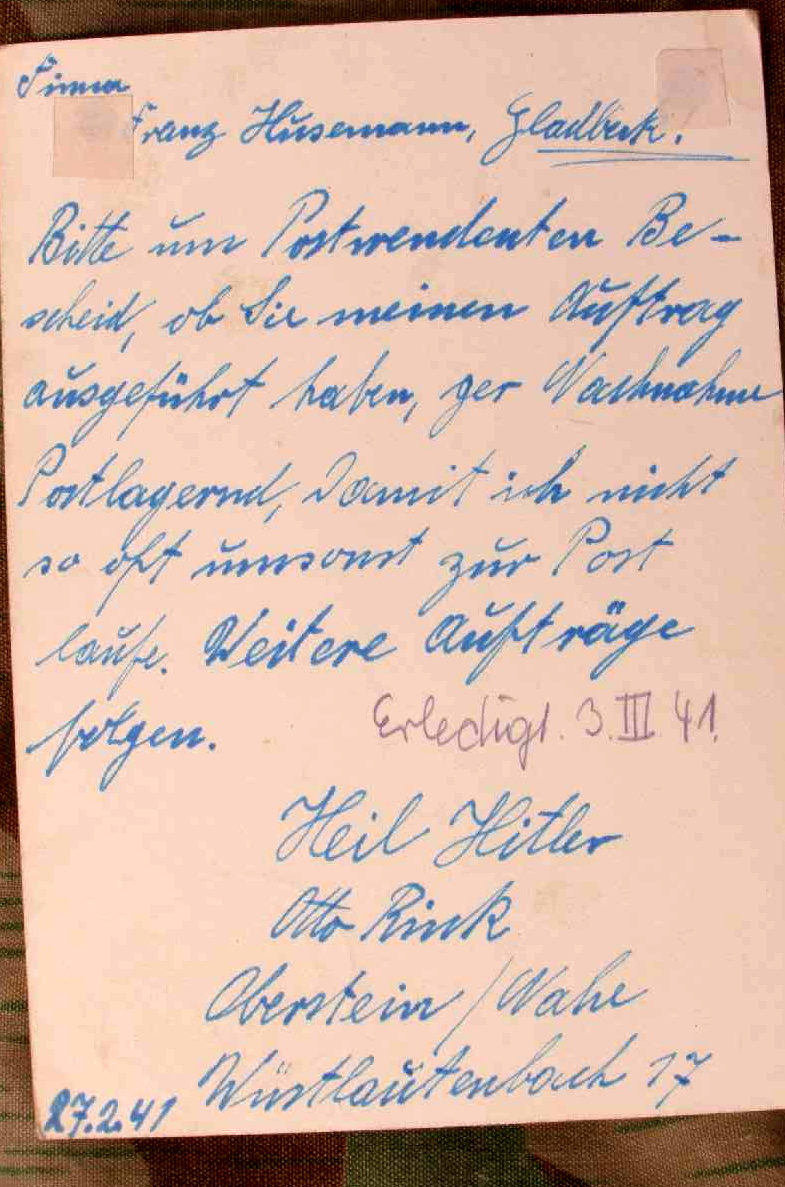 Firma
Franz Husemann, Gladbeck.
Bitte um Postwendenten Be-
scheid, ob Sie meinen Auftrag
ausgeführt haben, per Nachnahme
Postlagernd, Damit ich nicht
so oft umsonst zur Post
laufe. Weitere Aufträge
folgen.
Erledigt. 3.III.41.
Heil Hitler
Otto Rink
Oberstein / Nahe
Wüstlautenbach 17
27.2.41